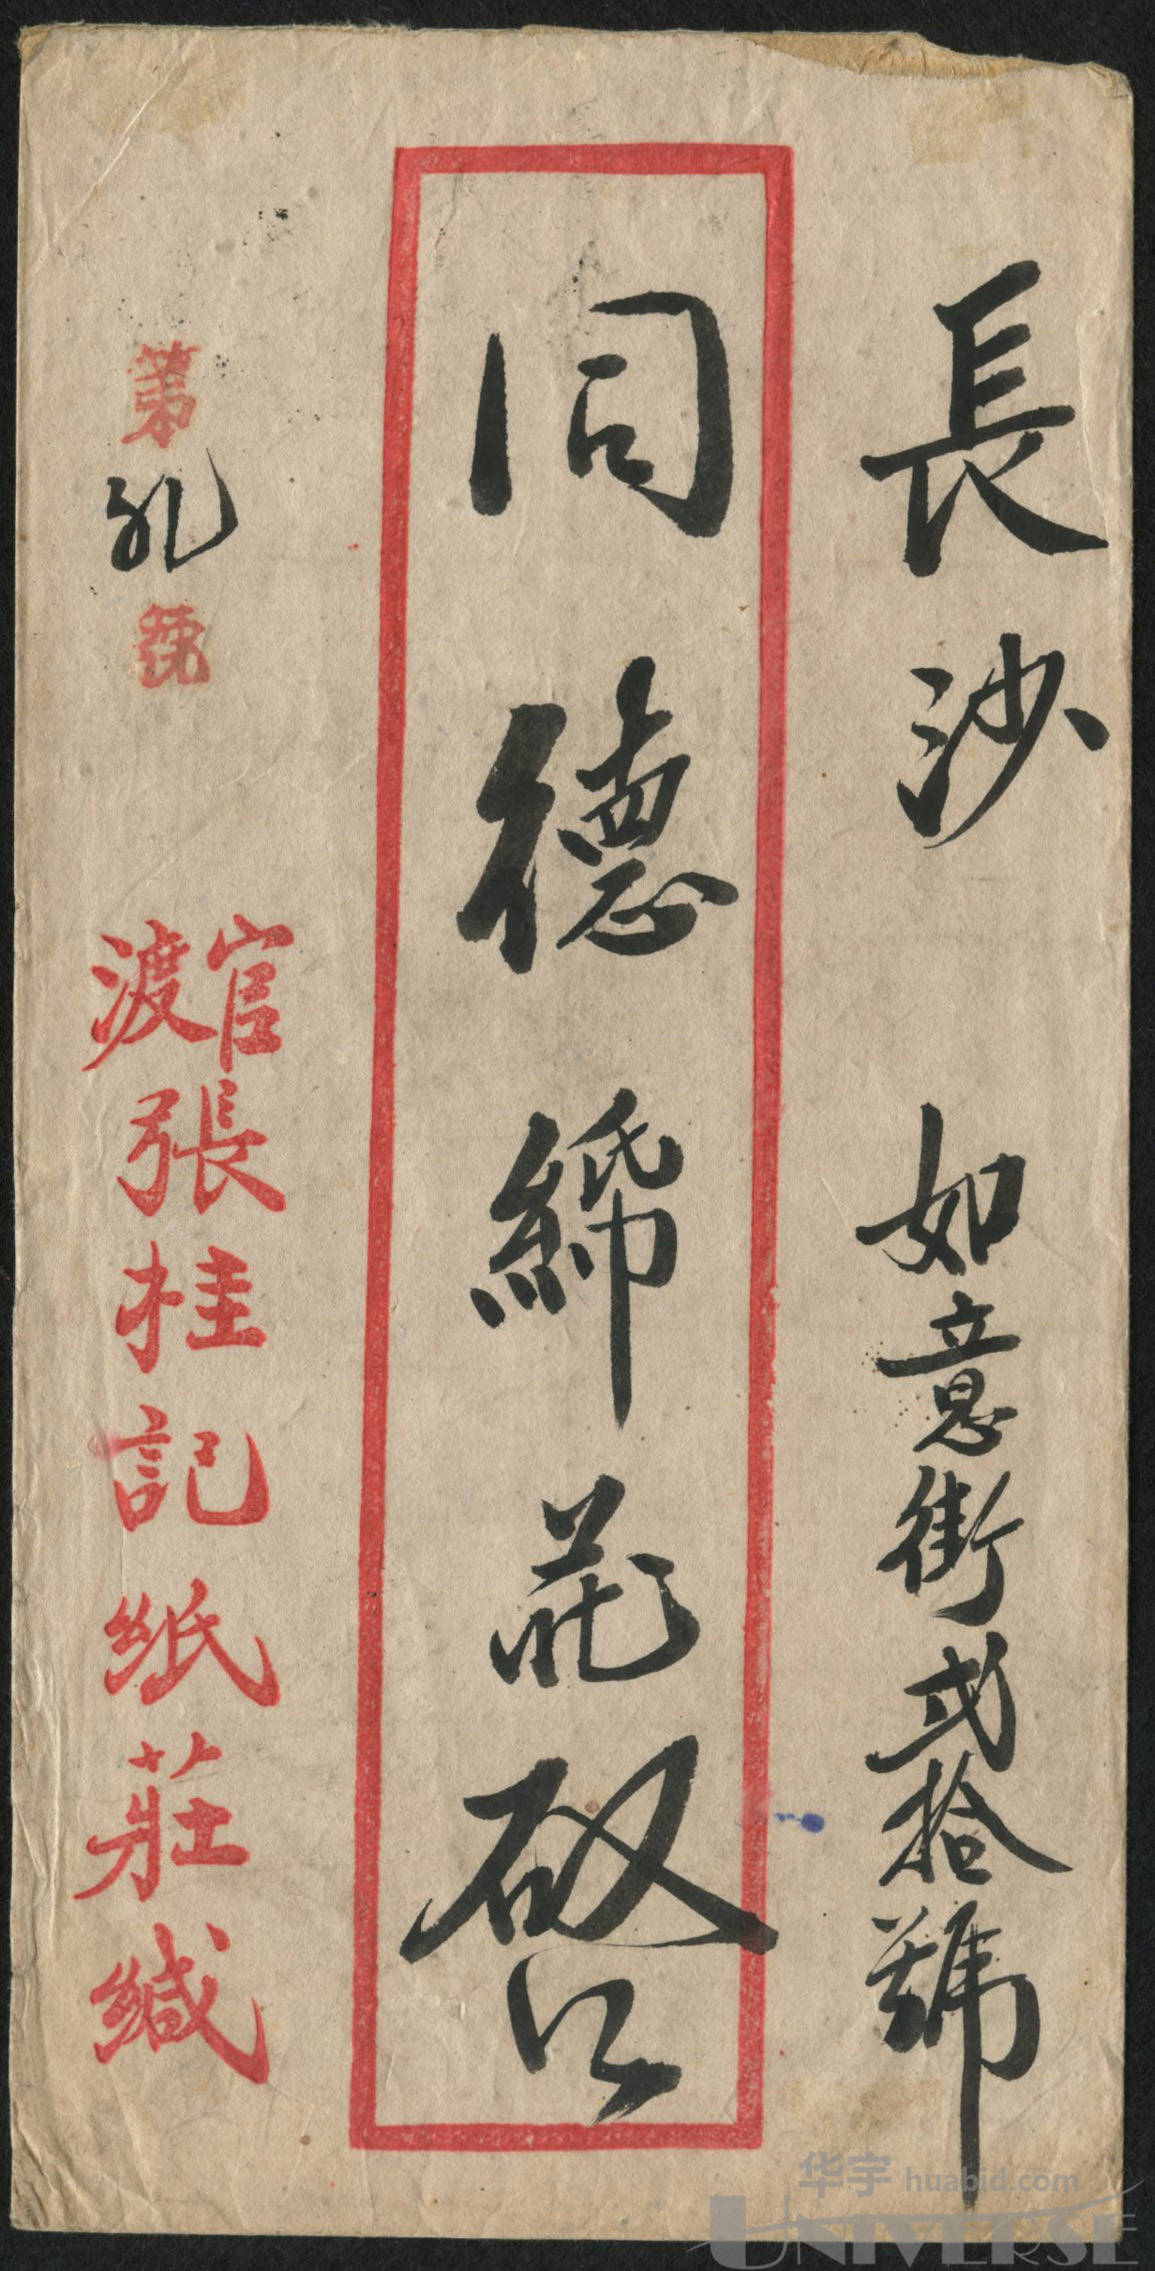 長沙 如意街貳拾號
同德綿花號台啟
第 九 號
官渡張桂記紙莊緘
华宇 huabid.com
UNIVERSE